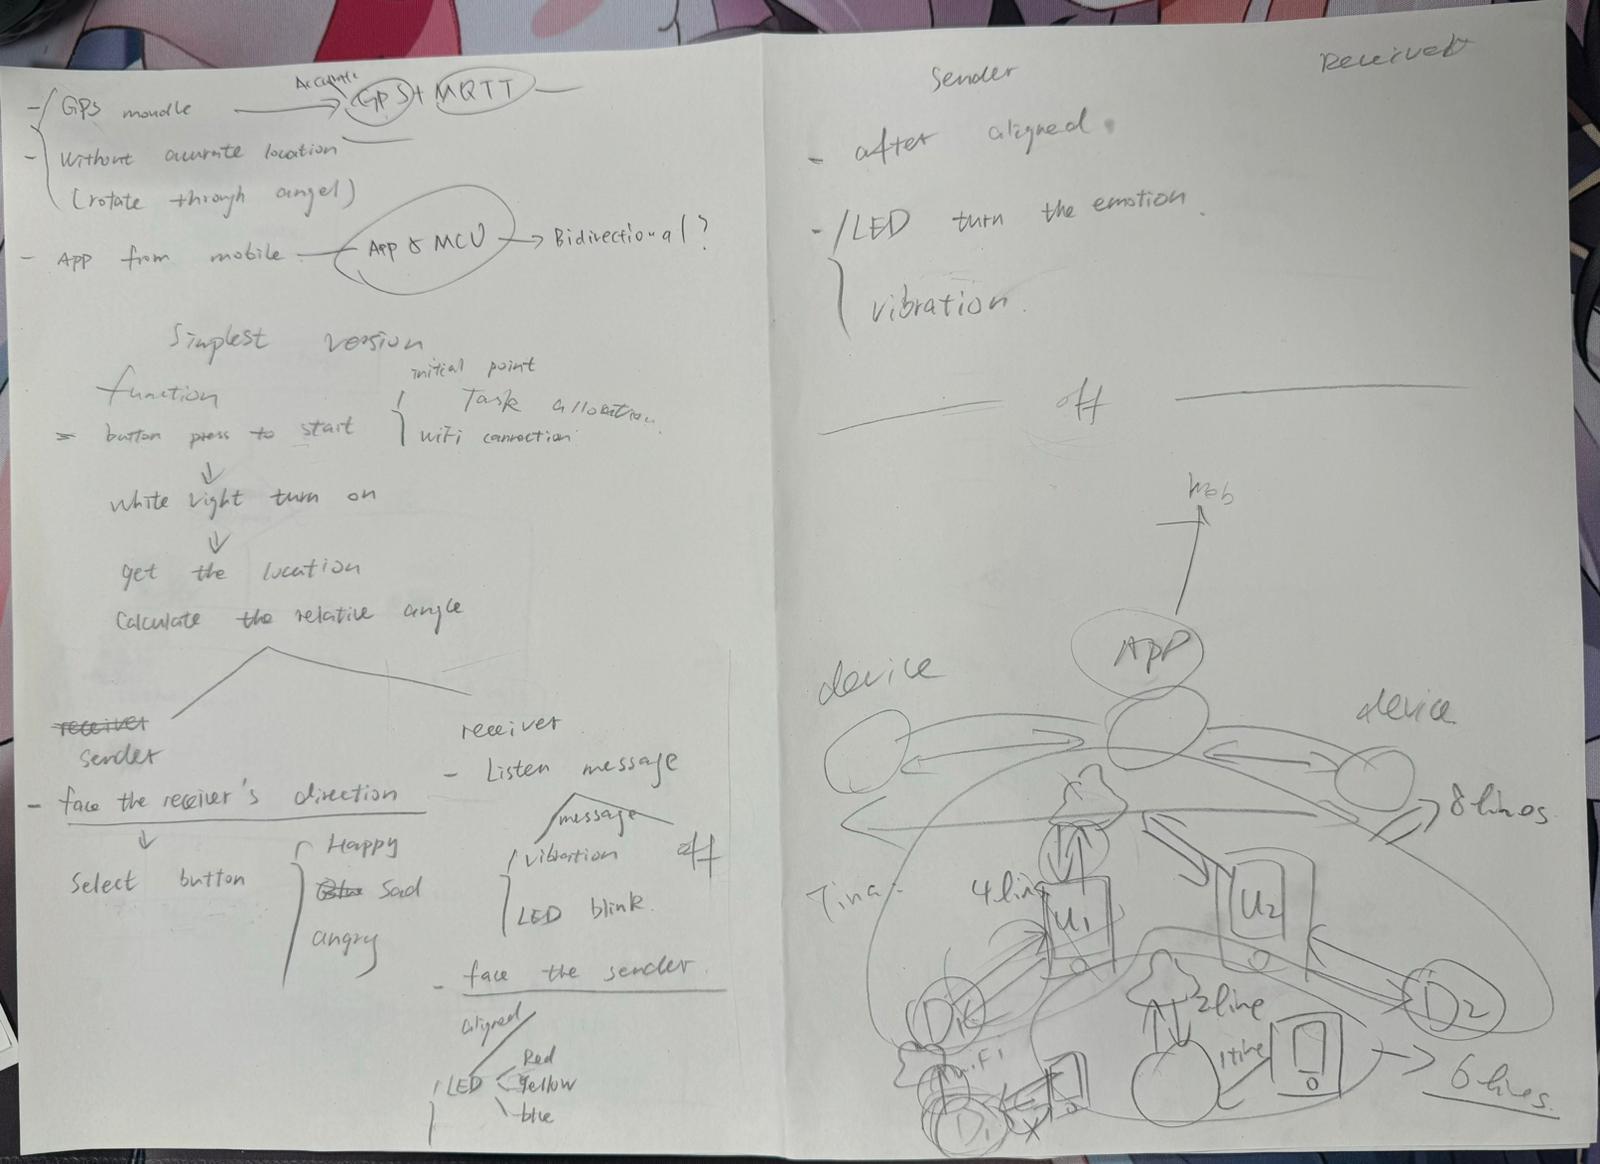 - GPS moudle
Accurate
GPS + MQTT
- Without acurrate location
(rotate through angel)
- App from mobile
App & MCU
Bidirectional?
Simplest version
function
initial point
Task allocation
button press to start
WiFi connection
White light turn on
get the location
Calculate the relative angle
receiver
sender
- face the receiver's direction
Select button
Happy
Sad
angry
receiver
- Listen message
message
vibration
off
LED blink.
- face the sender.
aligned
LED
Red
Yellow
blue
Sender
Receiver
- after aligned.
- LED turn the emotion.
vibration.
off
APP
device
device
8 lines
4 line
U1
U2
D1
D2
2 line
1 line
6 lines.
D1